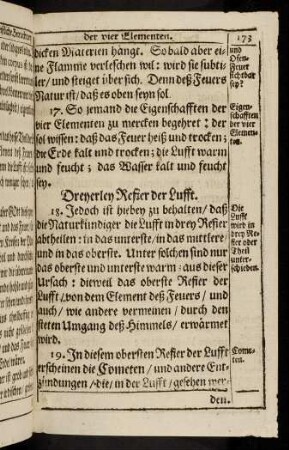 der vier Elementen.
173
dicken Materien hangt. So bald aber ei-
ne Flamme verleschen wil: wird sie subti-
ler/ und steiget über sich. Denn deß Feuers
Natur ist/ daß es oben seyn sol.
und
Ofen-
Feuer
sichtbar
sey?
17. So jemand die Eigenschafften der
vier Elementen zu mercken begehrt: der
sol wissen: daß das Feuer heiß und trocken;
die Erde kalt und trocken; die Lufft warm
und feucht; das Wasser kalt und feucht
sey.
Eigen-
schafften
der vier
Elemen-
ten.
Dreyerley Refier der Lufft.
18. Jedoch ist hiebey zu behalten/ daß
die Naturkündiger die Lufft in drey Refier
abtheilen: in das unterste/ in das mittlere
und in das oberste. Unter solchen sind nur
das oberste und unterste warm: aus dieser
Ursach: dieweil das oberste Refier der
Lufft/ von dem Element deß Feuers/ und
auch/ wie andere vermeinen/ durch den
steten Umgang deß Himmels/ erwärmet
wird.
Die
Lufft
wird in
drey Re-
fier oder
Theil
unter-
schieden.
19. In diesem obersten Refier der Lufft
erscheinen die Cometen/ und andere Ent-
zündungen/ die/ in der Lufft/ gesehen wer-
den.
Come-
ten.